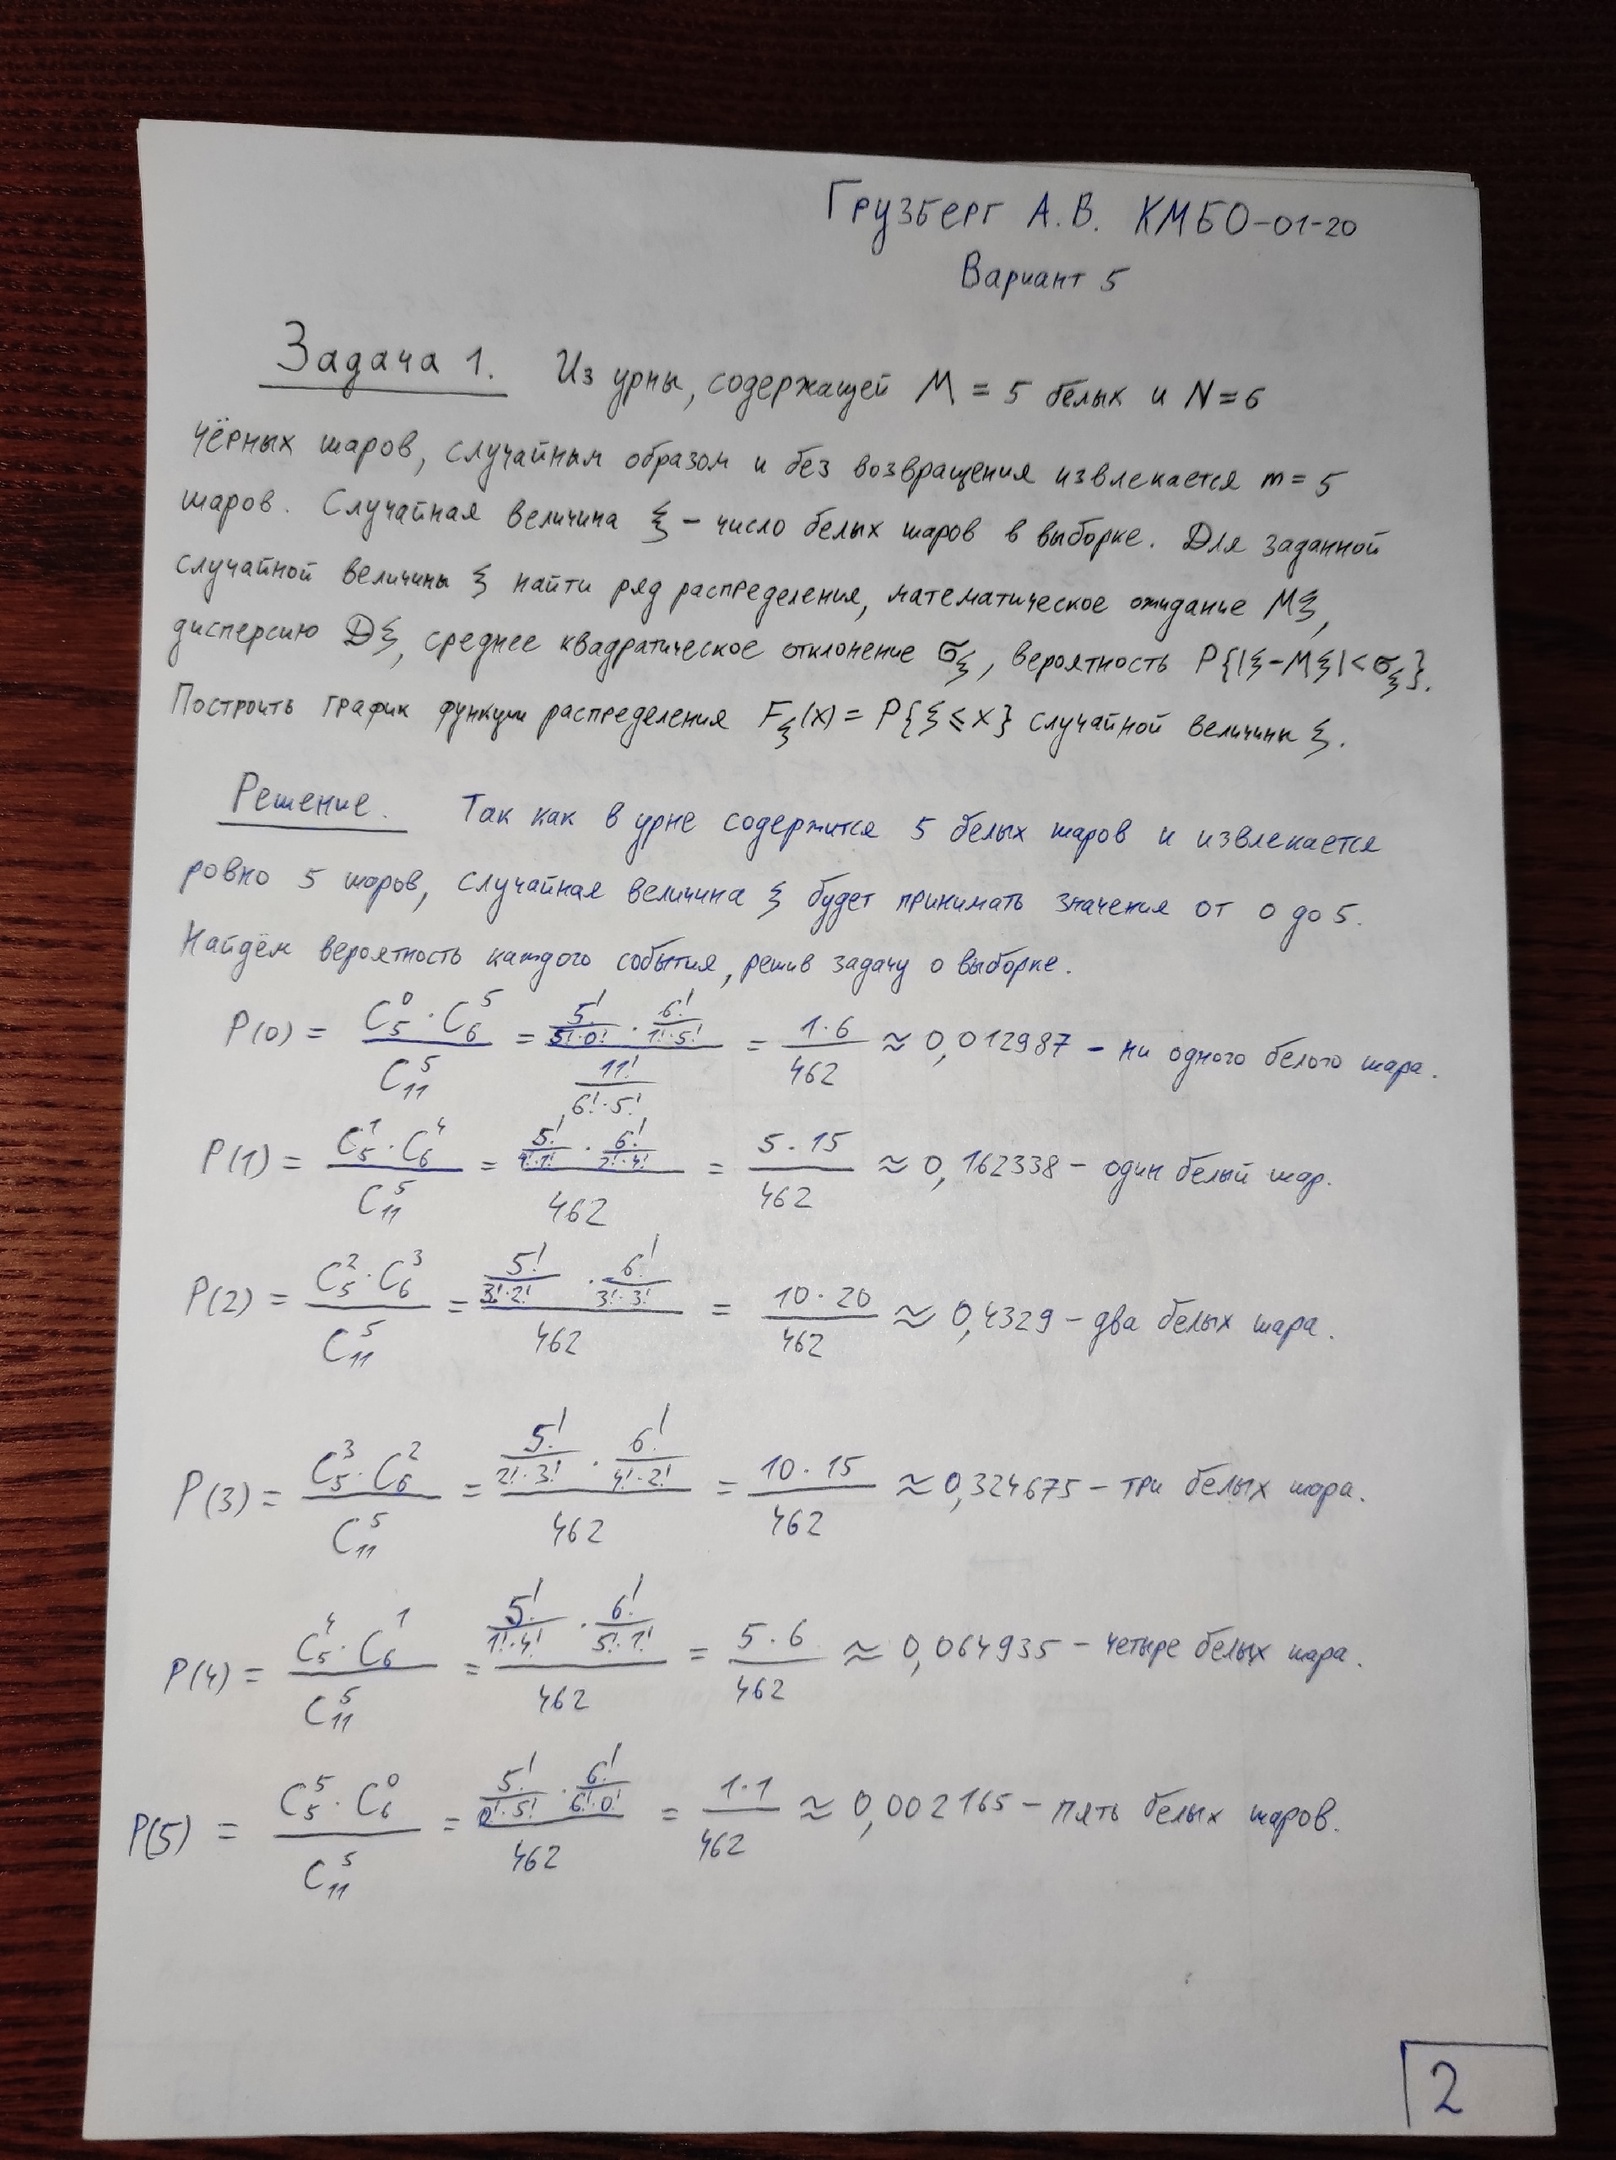 Грузберг А.В. КМБО-01-20
Вариант 5
Задача 1. Из урны, содержащей M = 5 белых и N = 6
чёрных шаров, случайным образом и без возвращения извлекается m = 5
шаров. Случайная величина ξ – число белых шаров в выборке. Для заданной
случайной величины ξ найти ряд распределения, математическое ожидание Mξ,
дисперсию Dξ, среднее квадратическое отклонение σ_ξ, вероятность P{|ξ-Mξ|<σ_ξ}.
Построить график функции распределения F_ξ(x) = P{ξ ≤ x} случайной величины ξ.
Решение. Так как в урне содержится 5 белых шаров и извлекается
ровно 5 шаров, случайная величина ξ будет принимать значения от 0 до 5.
Найдём вероятность каждого события, решив задачу о выборке.
P(0) = (C_5^0 · C_6^5) / C_11^5 = (5!/(5!·0!) · 6!/(1!·5!)) / (11!/(6!·5!)) = (1·6)/462 ≈ 0,012987 – ни одного белого шара.
P(1) = (C_5^1 · C_6^4) / C_11^5 = (5!/(4!·1!) · 6!/(2!·4!)) / 462 = (5·15)/462 ≈ 0,162338 – один белый шар.
P(2) = (C_5^2 · C_6^3) / C_11^5 = (5!/(3!·2!) · 6!/(3!·3!)) / 462 = (10·20)/462 ≈ 0,4329 – два белых шара.
P(3) = (C_5^3 · C_6^2) / C_11^5 = (5!/(2!·3!) · 6!/(4!·2!)) / 462 = (10·15)/462 ≈ 0,324675 – три белых шара.
P(4) = (C_5^4 · C_6^1) / C_11^5 = (5!/(1!·4!) · 6!/(5!·1!)) / 462 = (5·6)/462 ≈ 0,064935 – четыре белых шара.
P(5) = (C_5^5 · C_6^0) / C_11^5 = (5!/(0!·5!) · 6!/(6!·0!)) / 462 = (1·1)/462 ≈ 0,002165 – пять белых шаров.
2